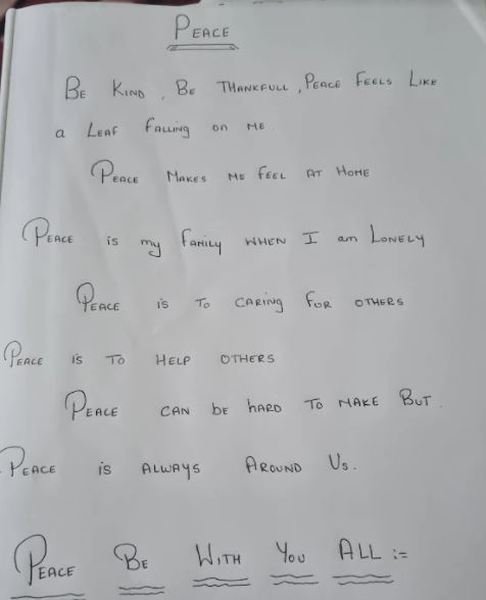 Peace
Be Kind, Be Thankfull, Peace Feels Like
a Leaf Falling on me
Peace Makes me Feel at Home
Peace is my Family when I am Lonely
Peace is to caring for others
Peace is to Help others
Peace can be hard to make But.
Peace is always Around Us.
Peace Be With You All :=